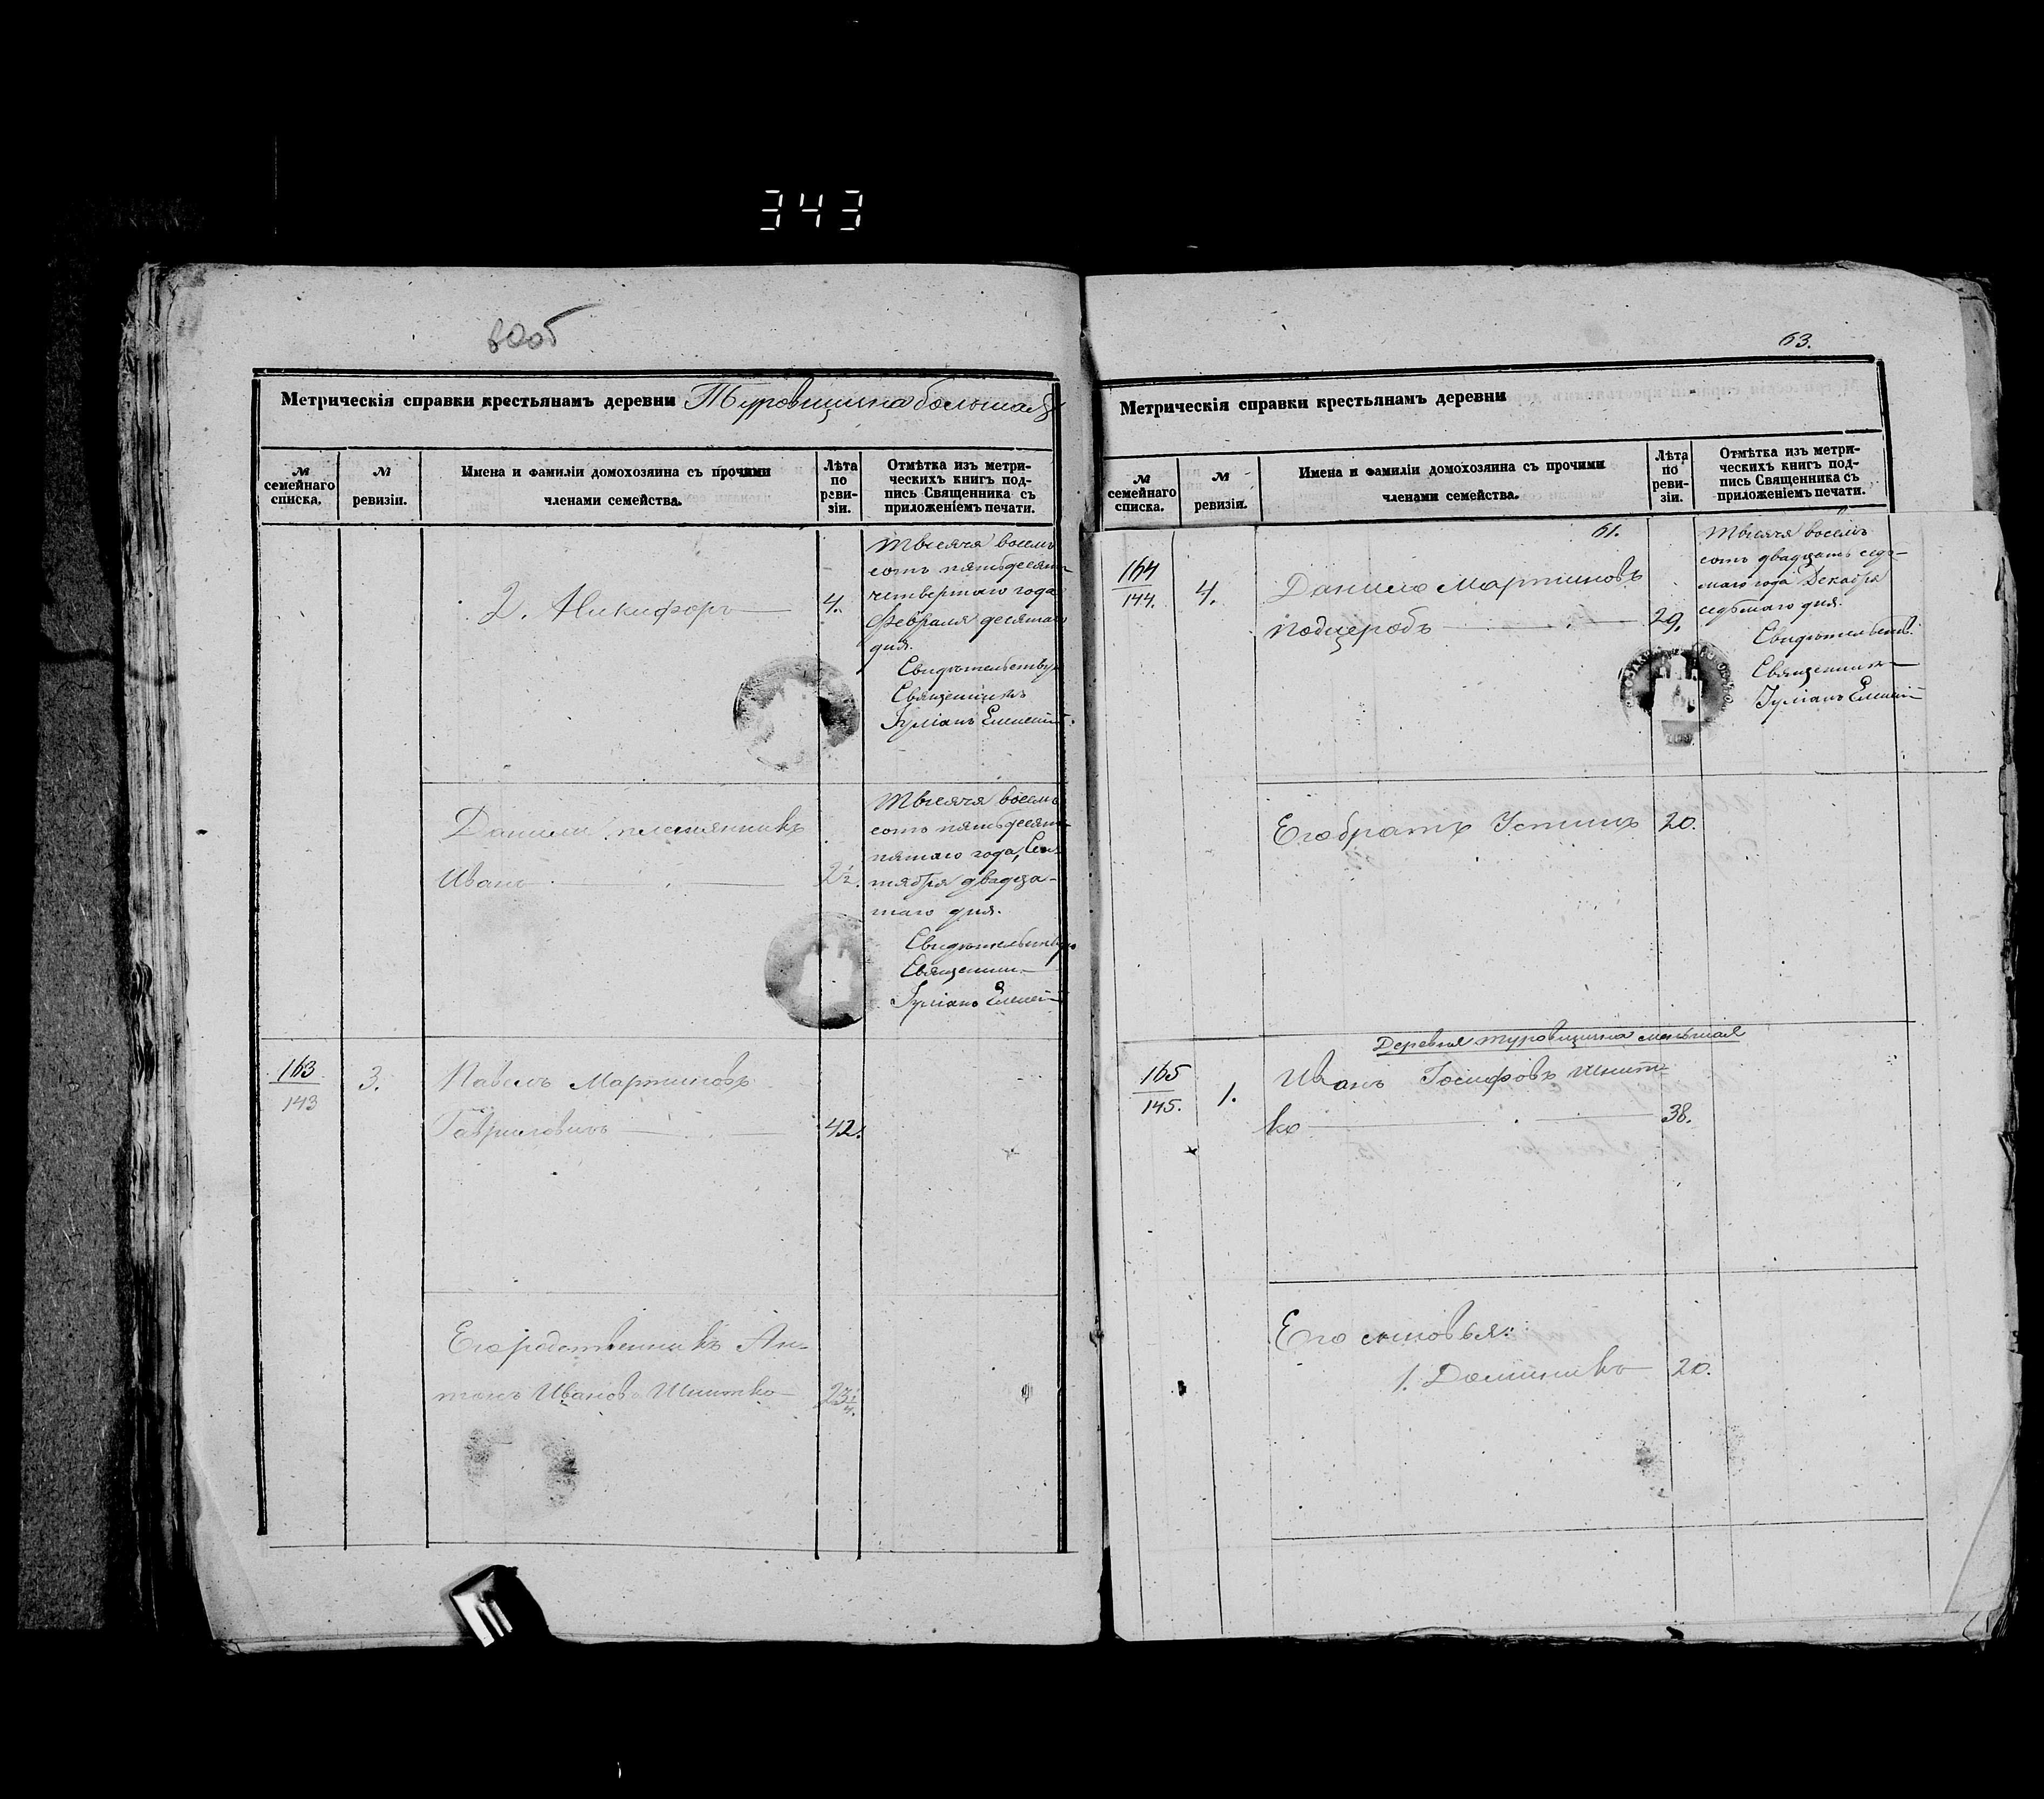 343
60об
Метрическія справки крестьянамъ деревни Туровщина большая
№ семейнаго списка.
№ ревизіи.
Имена и фамиліи домохозяина съ прочими членами семейства.
Лѣта по реви-зіи.
Отмѣтка изъ метри-ческихъ книгъ под-пись Священника съ приложеніемъ печати.
2. Никифоръ
4.
Тысяча восемь
сотъ пятьдесятъ
четвертаго года
Февраля десятаго
дня.
Свидѣтельствую
Священникъ
Іуліанъ
Данилы племянникъ
Иванъ
2½.
Тысяча восемь
сотъ пятьдесятъ
пятаго года, Сен-
тября двадца-
таго дня.
Свидѣтельствую
Священникъ
Іуліанъ
163
143
3.
Павелъ Мартиновъ
Гавриловичъ
42.
Его родственникъ Ан-
тонъ Ивановъ Шпитко
63.
Метрическія справки крестьянамъ деревни
№ семейнаго списка.
№ ревизіи.
Имена и фамиліи домохозяина съ прочими членами семейства.
Лѣта по реви-зіи.
Отмѣтка изъ метри-ческихъ книгъ под-пись Священника съ приложеніемъ печати.
61.
164
144.
4.
Данило Мартиновъ
Подщеробъ
29.
Тысяча восемь
сотъ двадцать седь-
маго года Декабря
седьмаго дня.
Священникъ
Іуліанъ
Его братъ Устинъ
20.
Деревня Туровщина меньшая
165
145.
1.
Иванъ Іосифовъ Шпит-
ко
38.
Его сыновья:
1. Доминикъ
20.